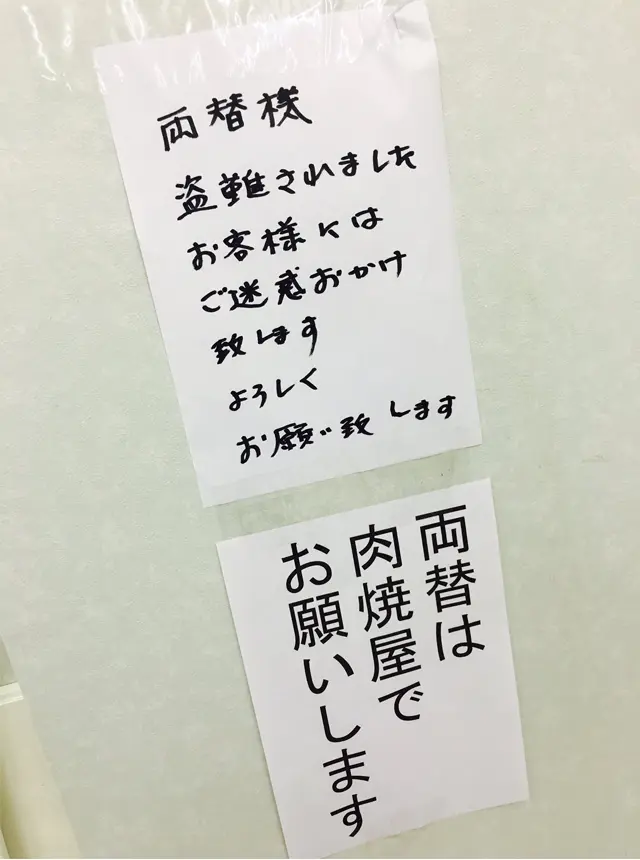 両替機
盗難されました
お客様には
ご迷惑おかけ
致します
よろしく
お願い致します
両替は
肉焼屋で
お願いします